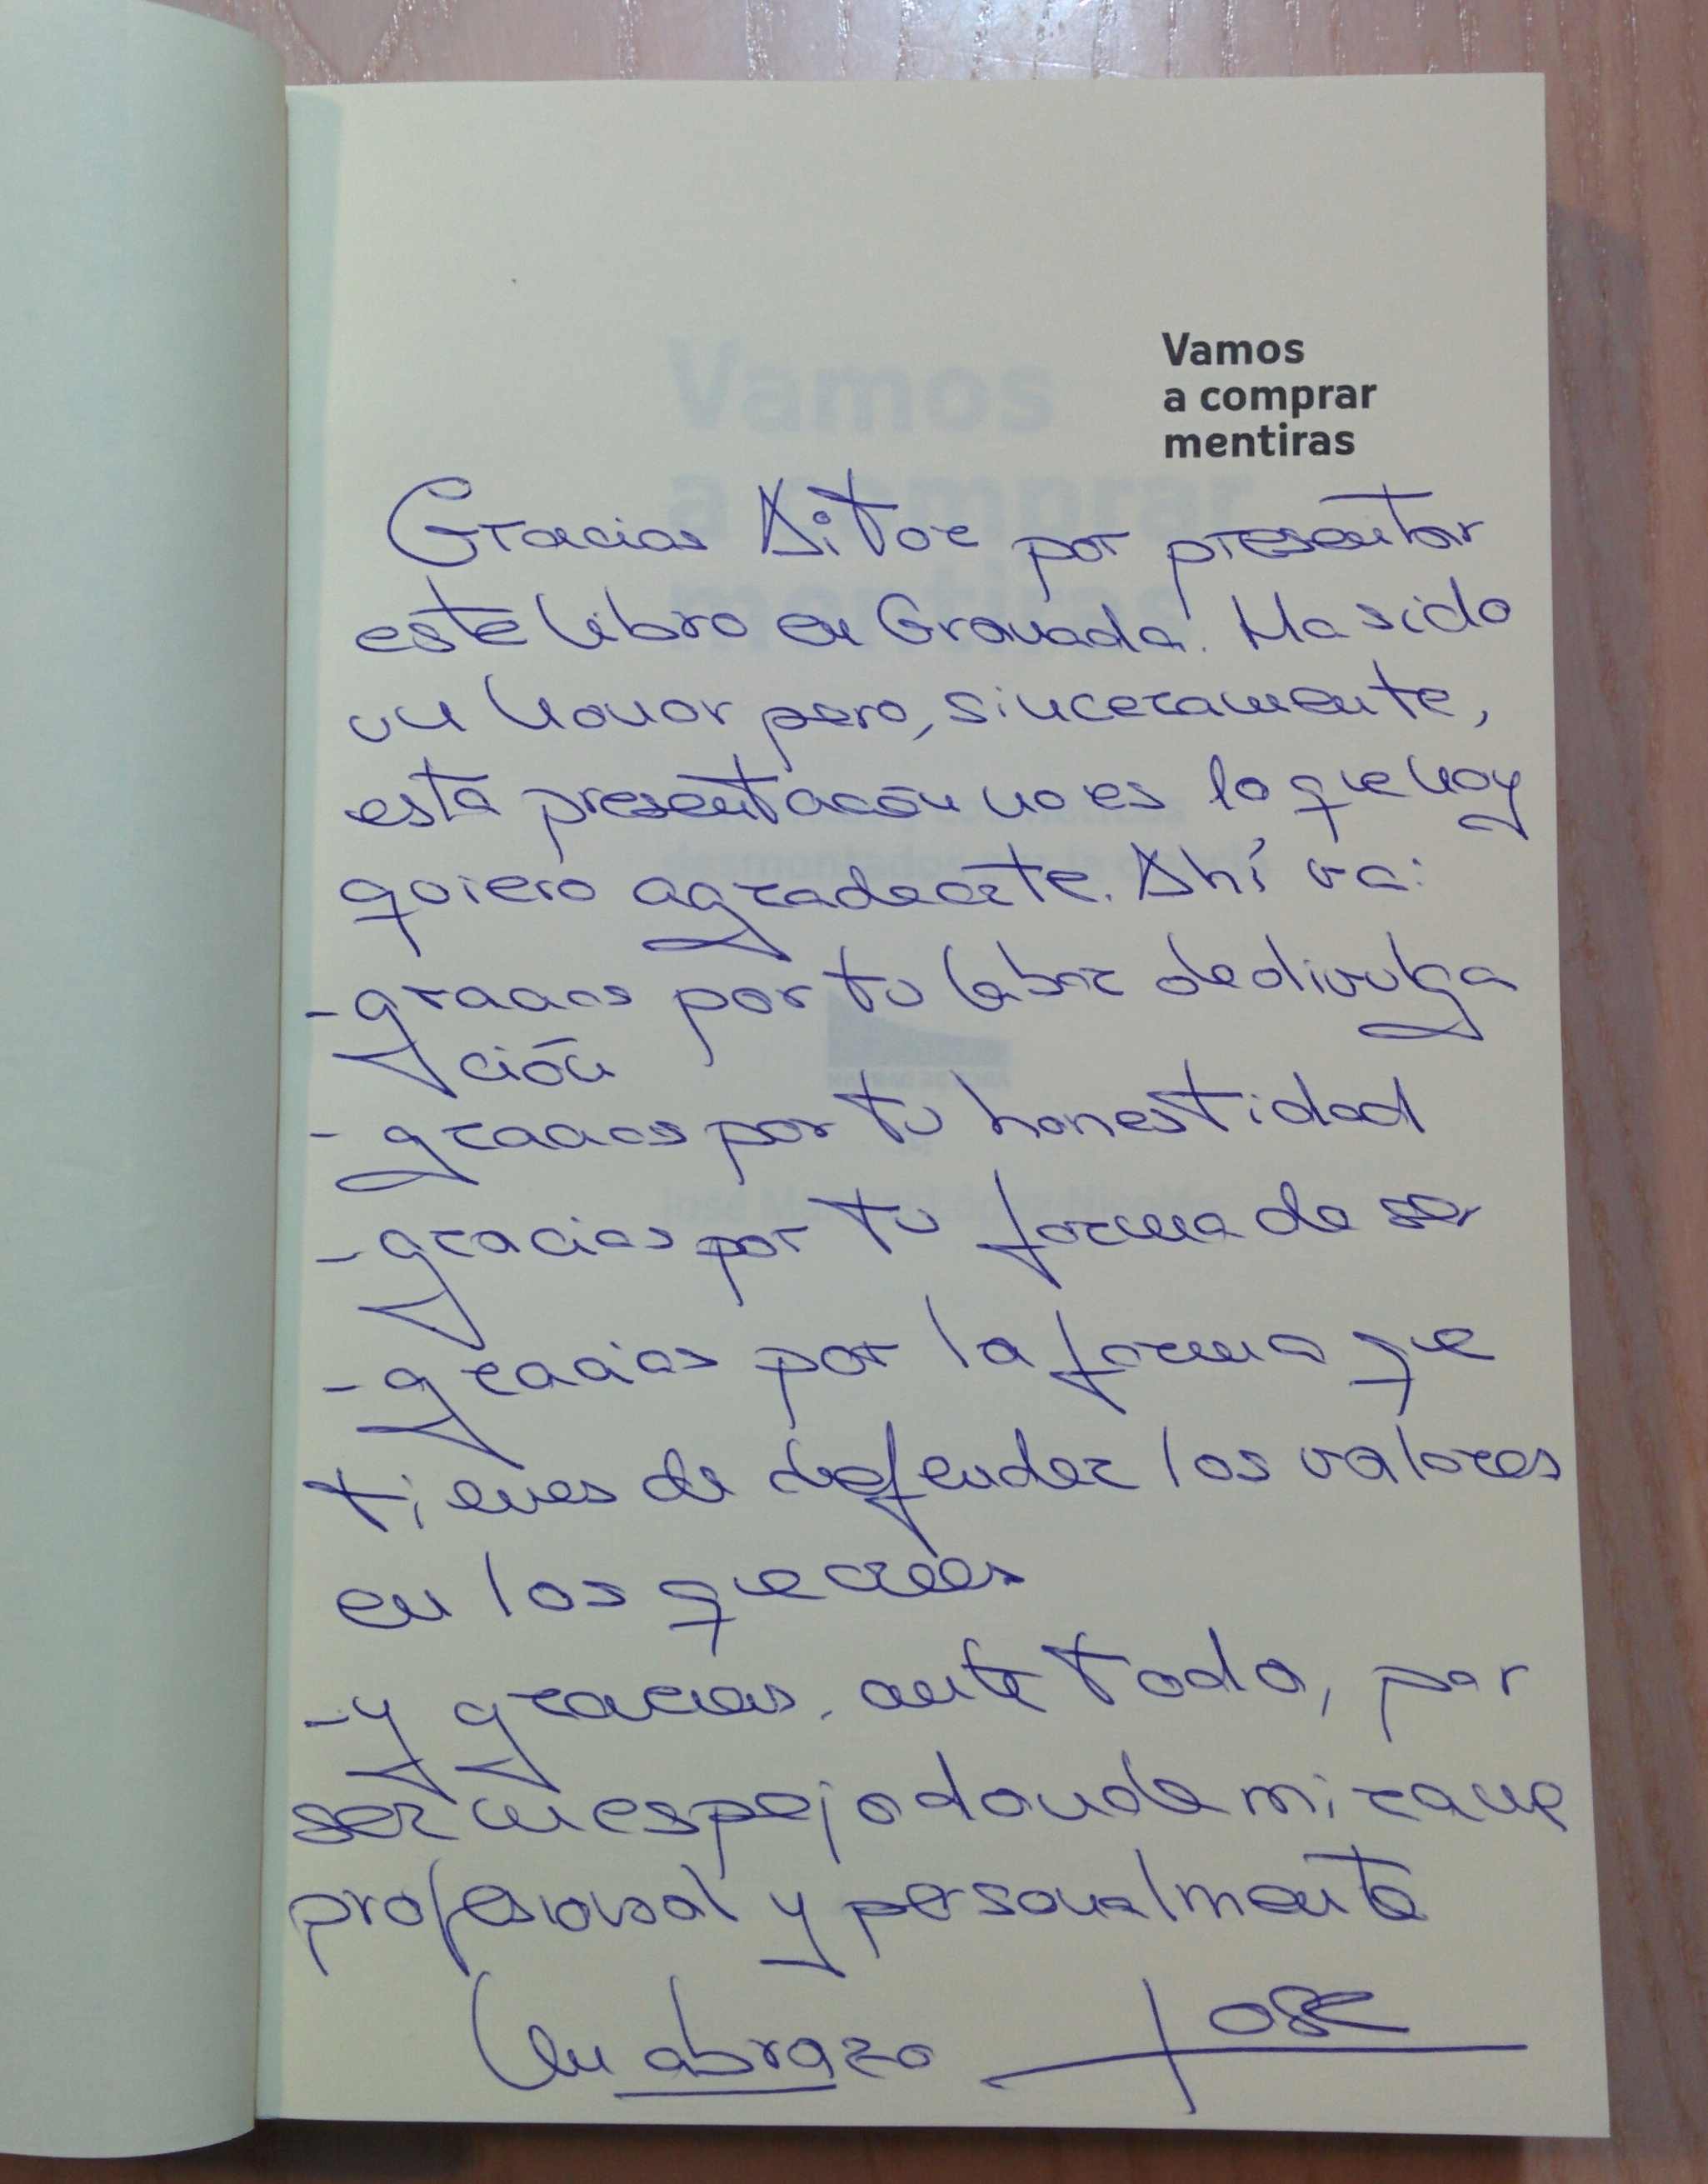 Vamos
a comprar
mentiras
Gracias Aitor por presentar
este libro en Granada. Ha sido
un honor pero, sinceramente,
esta presentación no es lo que hoy
quiero agradecerte. Ahí va:
- gracias por tu labor de divulga
ción
- gracias por tu honestidad
- gracias por tu forma de ser
- gracias por la forma que
tienes de defender los valores
en los que crees
- y gracias, ante todo, por
ser un espejo donde mirarme
profesional y personalmente
Un abrazo Jose